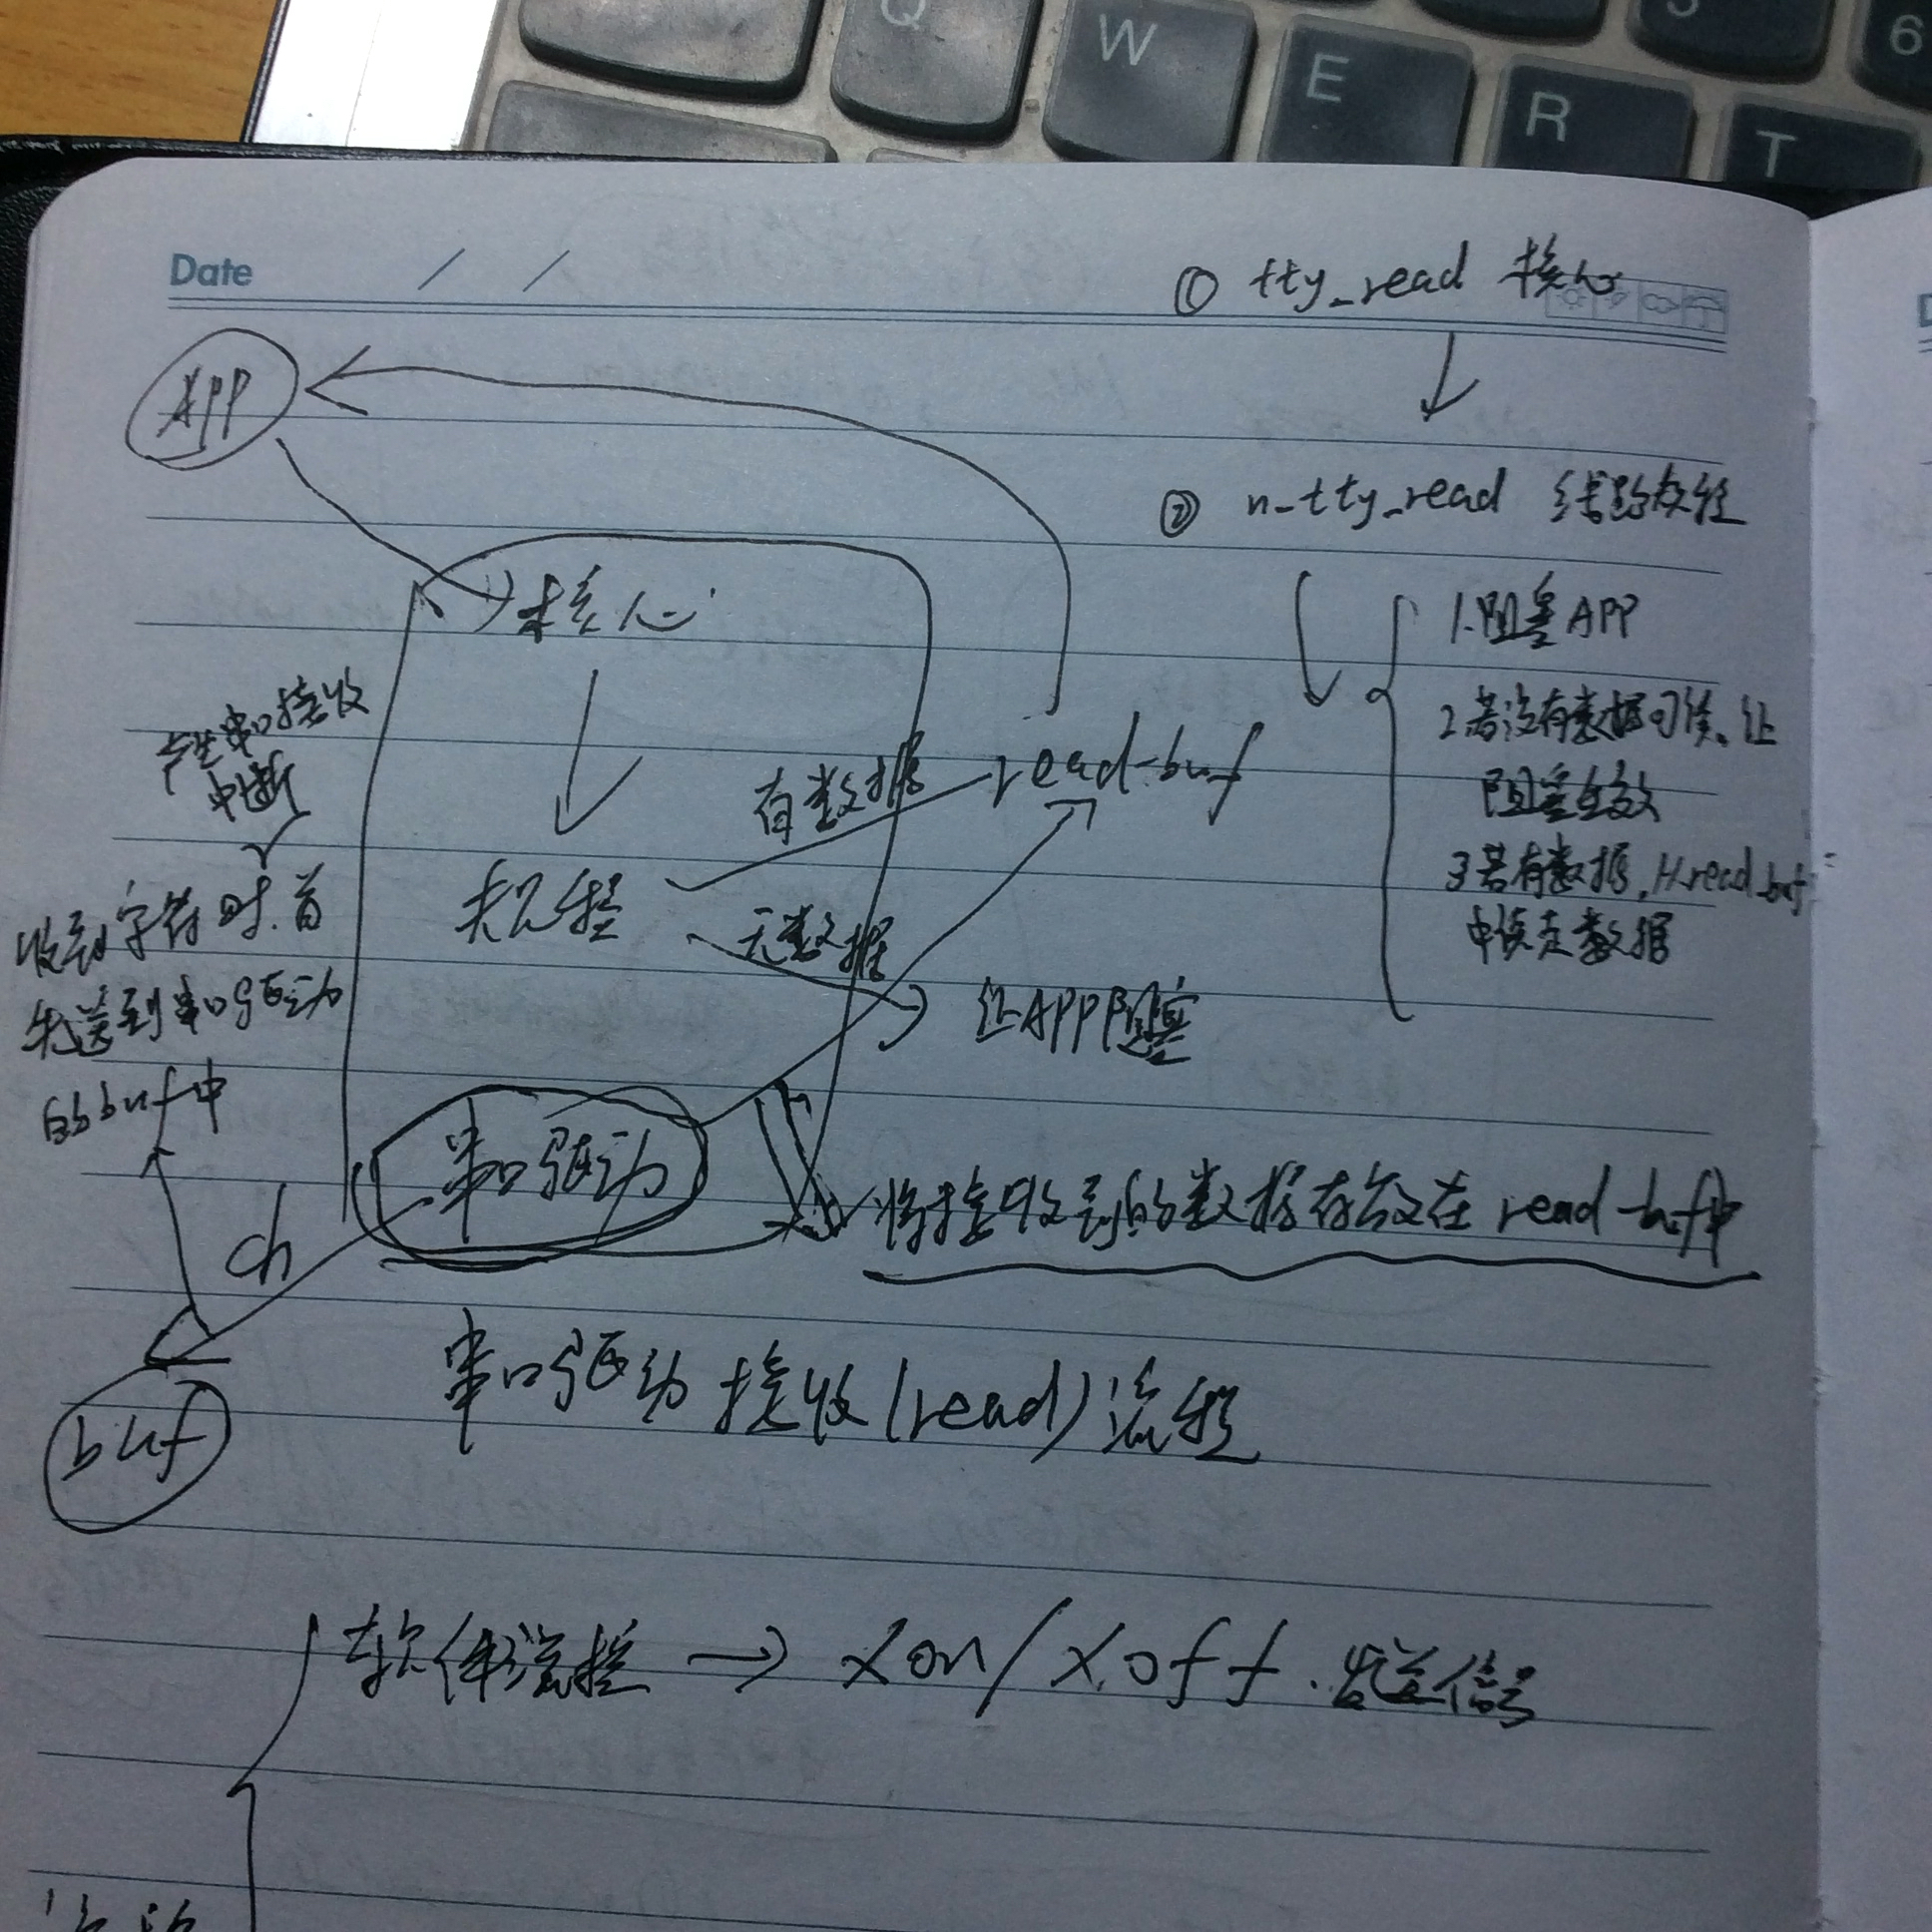 Q
W
E
R
T
5
6
Date / /
① tty_read 核心
APP
② n_tty_read 线路规程
核心
1.阻塞APP
2.若没有数据可读、让
阻塞生效
3若有数据,从read_buf
中读走数据
产生串口接收
中断
有数据
read-buf
规程
收到字符时.首
先送到串口驱动
的buf中
无数据
让APP阻塞
串口驱动
ch
将接收到的数据存放在read-buf中
串口驱动接收(read)流程
buf
软件流控 → Xon/Xoff.发送信号